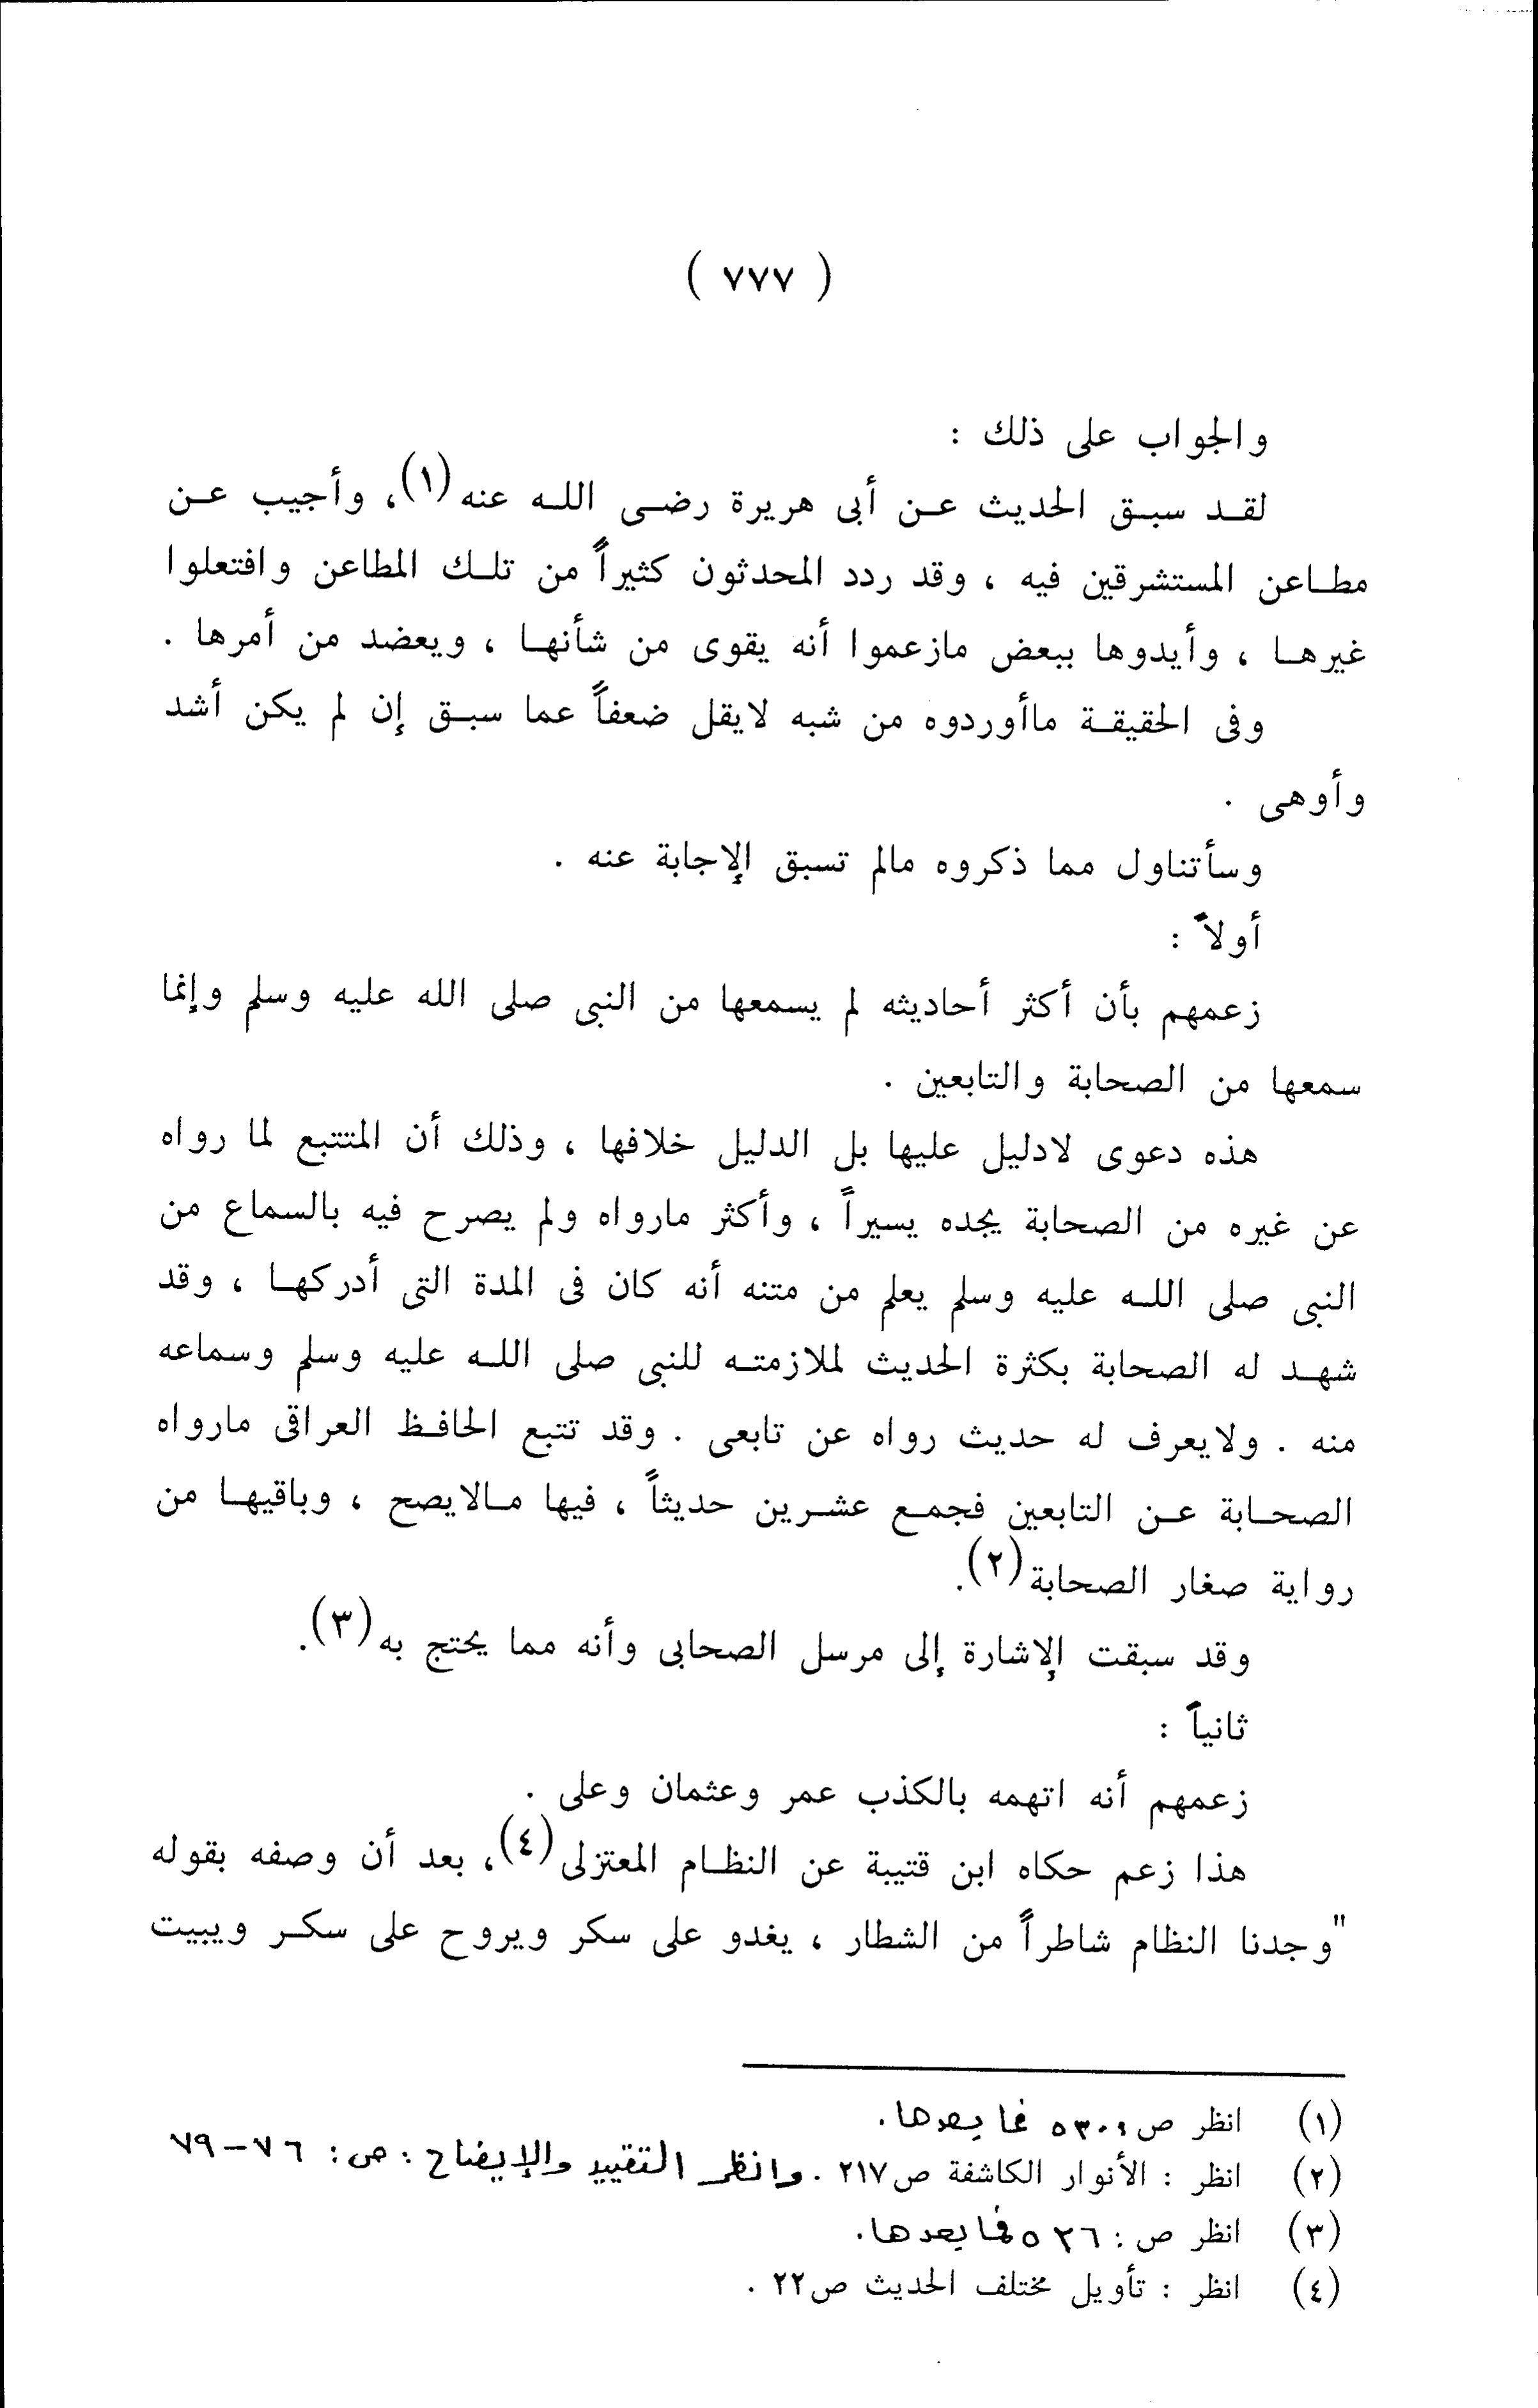 ( ٧٧٧ )
والجواب على ذلك :
لقد سبق الحديث عن أبى هريرة رضى الله عنه(١)، وأجيب عن
مطاعن المستشرقين فيه ، وقد ردد المحدثون كثيراً من تلك المطاعن وافتعلوا
غيرها ، وأيدوها ببعض مازعموا أنه يقوى من شأنها ، ويعضد من أمرها .
وفى الحقيقة ماأوردوه من شبه لايقل ضعفاً عما سبق إن لم يكن أشد
وأوهى .
وسأتناول مما ذكروه مالم تسبق الإجابة عنه .
أولاً :
زعمهم بأن أكثر أحاديثه لم يسمعها من النبى صلى الله عليه وسلم وإنما
سمعها من الصحابة والتابعين .
هذه دعوى لادليل عليها بل الدليل خلافها ، وذلك أن المتتبع لما رواه
عن غيره من الصحابة يجده يسيراً ، وأكثر مارواه ولم يصرح فيه بالسماع من
النبى صلى الله عليه وسلم يعلم من متنه أنه كان فى المدة التى أدركها ، وقد
شهد له الصحابة بكثرة الحديث لملازمته للنبى صلى الله عليه وسلم وسماعه
منه . ولايعرف له حديث رواه عن تابعى . وقد تتبع الحافظ العراقى مارواه
الصحابة عن التابعين فجمع عشرين حديثاً ، فيها مالايصح ، وباقيها من
رواية صغار الصحابة(٢).
وقد سبقت الإشارة إلى مرسل الصحابى وأنه مما يحتج به(٣).
ثانياً :
زعمهم أنه اتهمه بالكذب عمر وعثمان وعلى .
هذا زعم حكاه ابن قتيبة عن النظام المعتزلى(٤)، بعد أن وصفه بقوله
"وجدنا النظام شاطراً من الشطار ، يغدو على سكر ويروح على سكر ويبيت
(١) انظر ص فما بعدها.
(٢) انظر : الأنوار الكاشفة ص٢١٧ . وانظر التقييد والإيضاح : ص : ٧٦-٧٩
(٣) انظر ص : ٥٢٦ فما بعدها.
(٤) انظر : تأويل مختلف الحديث ص٢٢ .